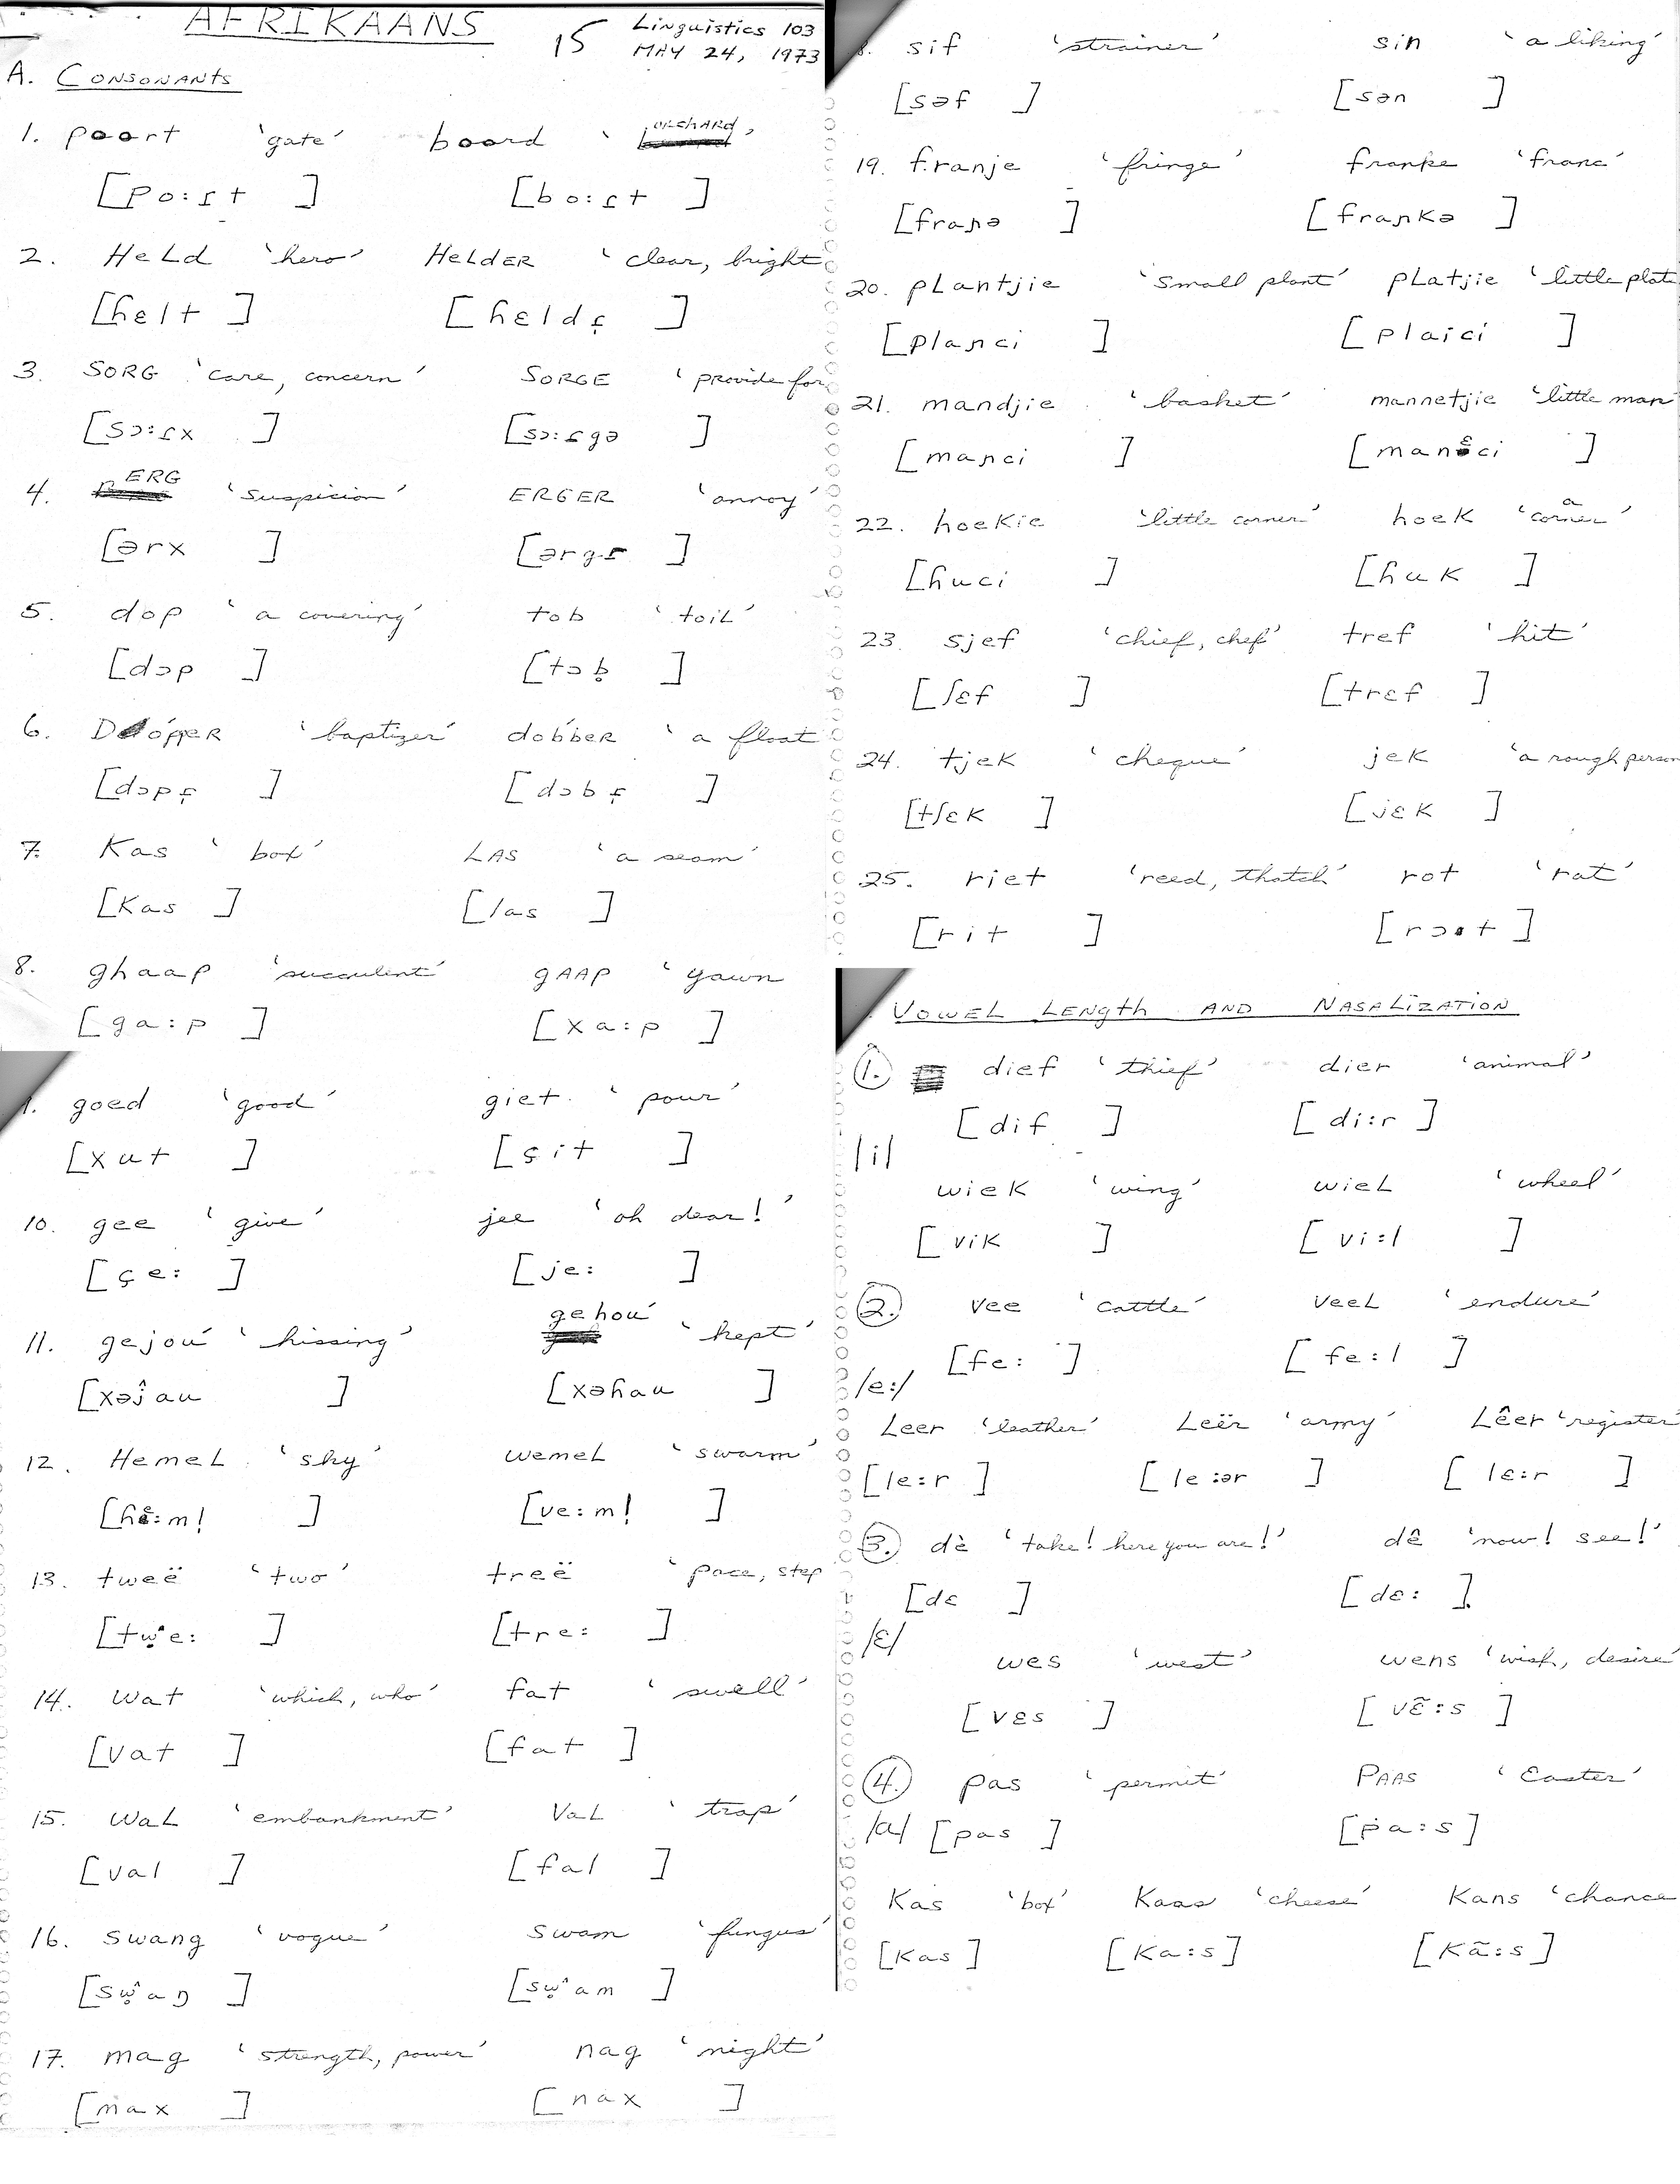 AFRIKAANS
15
Linguistics 103
MAY 24, 1973
A. CONSONANTS
1. poort 'gate' boord 'ORCHARD'
[po:ɾt] [bo:ɾt]
2. HeLd 'hero' HeLdER 'clear, bright
[ɦɛlt] [ɦɛldɾ̩]
3. SORG 'care, concern' SORGE 'provide for
[sɔ:ɾx] [sɔ:ɾgə]
4. ERG 'suspicion' ERGER 'annoy'
[ərx] [ərgɾ]
5. dop 'a covering' tob 'toil'
[dɔp] [tɔb̥]
6. DópER 'baptizer' dóbbER 'a float
[dɔpɾ̩] [dɔbɾ̩]
7. Kas 'box' LAS 'a seam'
[kas] [las]
8. ghaap 'succulent' gAAP 'yawn
[ga:p] [xa:p]
9. goed 'good' giet 'pour'
[xut] [çit]
10. gee 'give' jee 'oh dear!'
[çe:] [je:]
11. gejoú 'hissing' gehoú 'kept'
[xəĵau] [xəɦau]
12. HemeL 'sky' wemeL 'swarm'
[ɦe:ml̩] [ve:ml̩]
13. tweë 'two' treë 'pace, step
[tw̥ˆe:] [tre:]
14. wat 'which, who' fat 'swell'
[vat] [fat]
15. waL 'embankment' VaL 'trap'
[val] [fal]
16. swang 'vogue' swam 'fungus'
[sw̥ˆaŋ] [sw̥ˆam]
17. mag 'strength, power' nag 'night'
[max] [nax]
8. sif 'strainer' sin 'a liking'
[səf] [sən]
19. franje 'fringe' franke 'franc'
[fraɲə] [fraɲkə]
20. pLantjie 'small plant' pLatjie 'little plate
[plaɲci] [plaici]
21. mandjie 'basket' mannetjie 'little man
[maɲci] [manɛci]
22. hoekie 'little corner' hoek 'a corner'
[ɦuci] [ɦuk]
23. sjef 'chief, chef' tref 'hit'
[ʃɛf] [trɛf]
24. tjek 'cheque' jek 'a rough person
[tʃɛk] [jɛk]
25. riet 'reed, thatch' rot 'rat'
[rit] [rɔt]
VOWEL LENgth AND NASALIZATION
1. dief 'thief' dier 'animal'
[dif] [di:r]
/i/
wiek 'wing' wieL 'wheel'
[vik] [vi:l]
2. vee 'cattle' veeL 'endure'
[fe:] [fe:l]
/e:/
Leer 'leather' Leër 'army' Lêer 'register'
[le:r] [le:ər] [lɛ:r]
3. dè 'take! here you are!' dê 'now! see!'
[dɛ] [dɛ:]
/ɛ/
wes 'west' wens 'wish, desire'
[vɛs] [vɛ̃:s]
4. pas 'permit' PAAS 'Easter'
/a/ [pas] [pa:s]
Kas 'box' Kaas 'cheese' Kans 'chance
[kas] [ka:s] [kã:s]